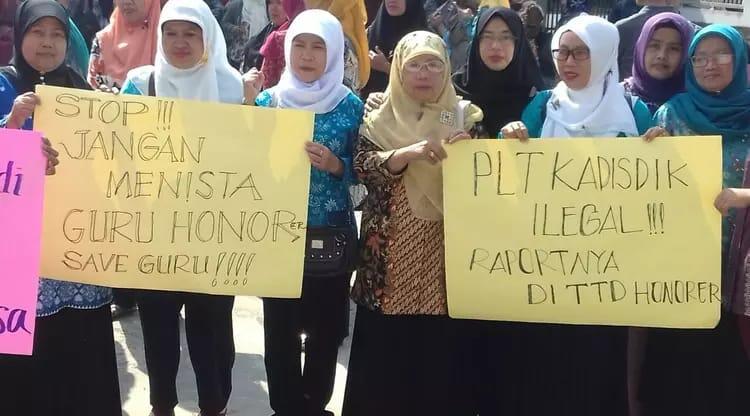 STOP!!!
JANGAN
MENISTA
GURU HONORER
SAVE GURU!!!!
PLT KADISDIK
ILEGAL!!!
RAPORTNYA
DI TTD HONORER
di
sa